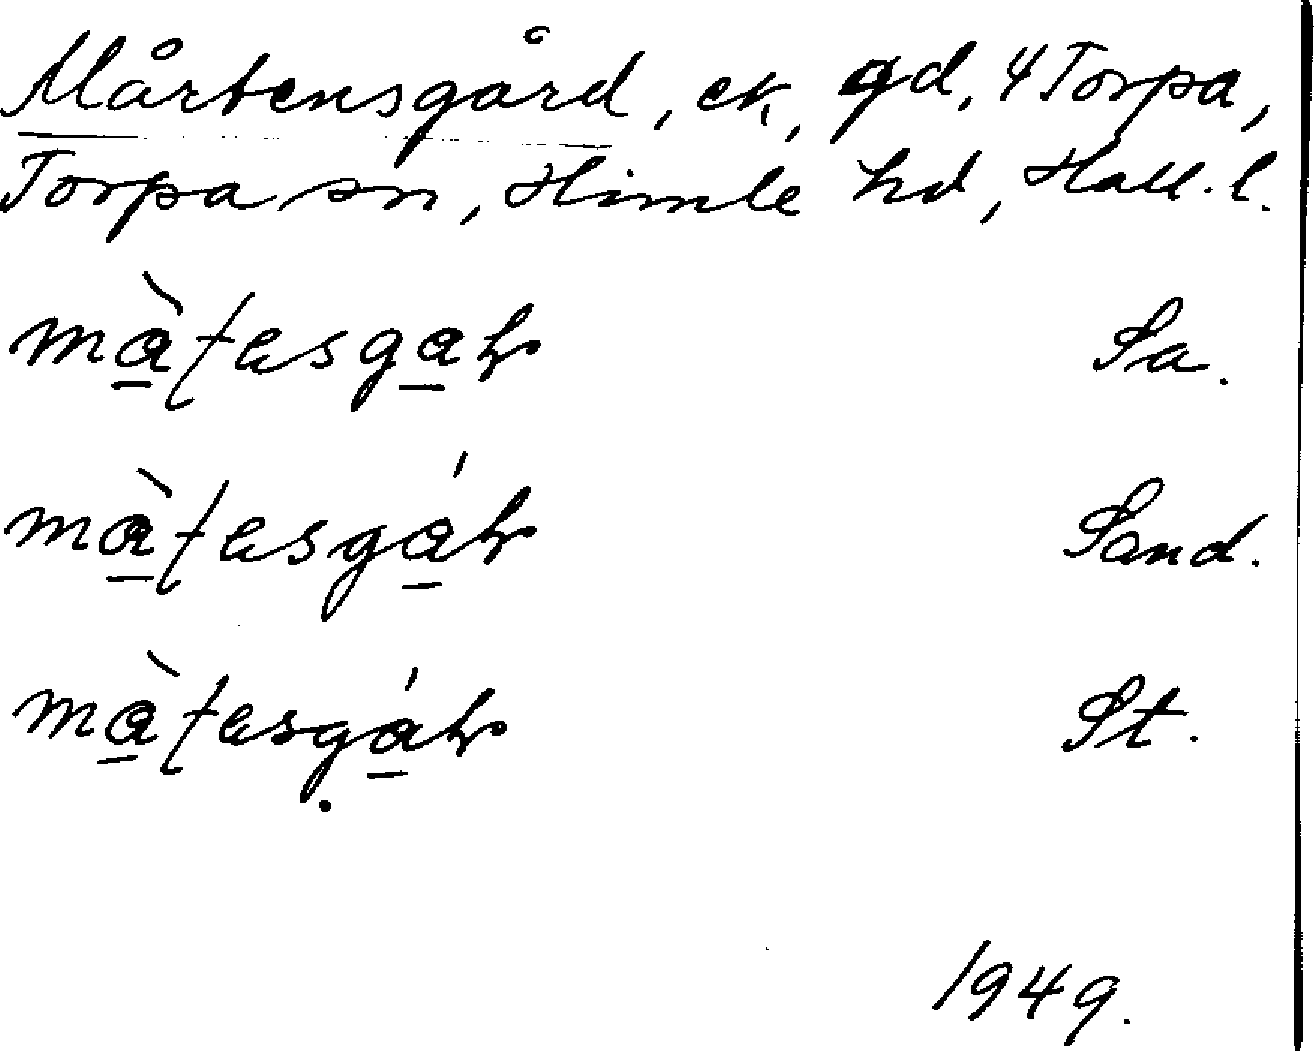 Mårtensgård, ek, gd, 4 Torpa,
Torpa sn, Himle hd, Hall. l.
Sa.
Sand.
St.
1949.